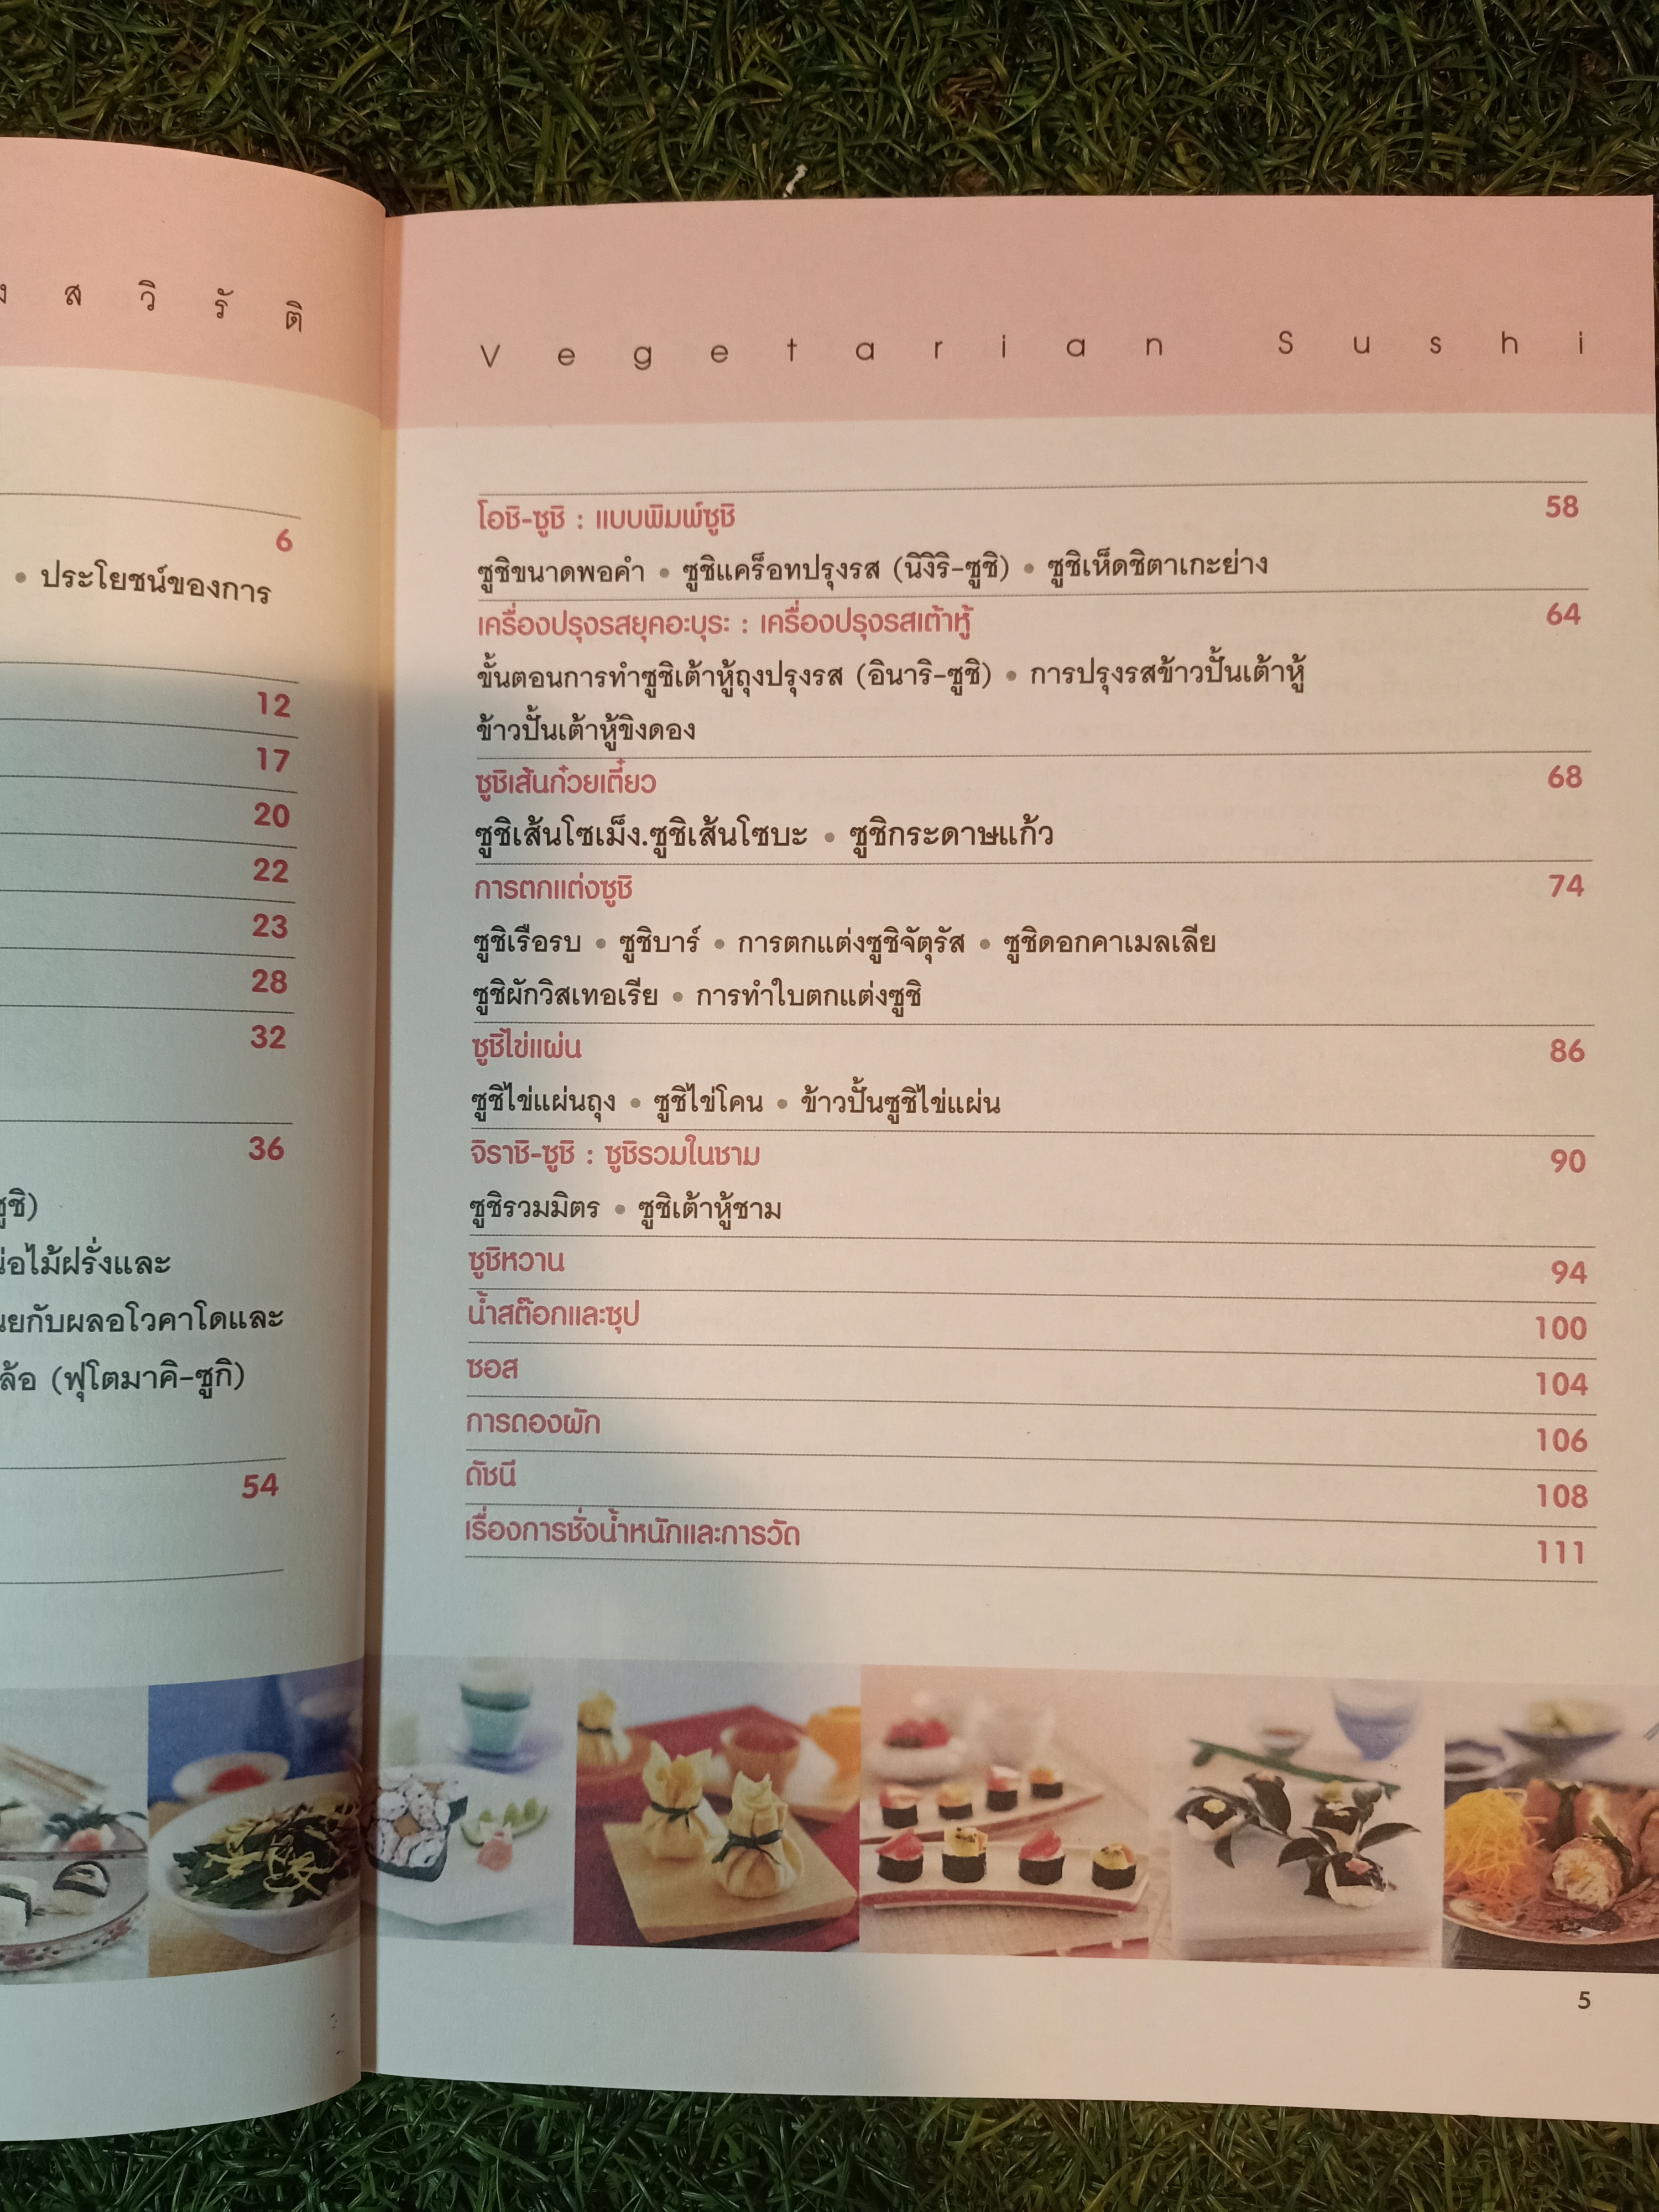 ง ส วิ รั ติ
6
• ประโยชน์ของการ
12
17
20
22
23
28
32
36
ซูชิ)
หน่อไม้ฝรั่งและ
กับผลอโวคาโดและ
ล้อ (ฟุโตมาคิ-ซูกิ)
54
Vegetarian Sushi
โอชิ-ซูชิ : แบบพิมพ์ซูชิ 58
ซูชิขนาดพอคำ • ซูชิแคร็อทปรุงรส (นิงิริ-ซูชิ) • ซูชิเห็ดชิตาเกะย่าง
เครื่องปรุงรสยุคอะบุระ : เครื่องปรุงรสเต้าหู้ 64
ขั้นตอนการทำซูชิเต้าหู้ถุงปรุงรส (อินาริ-ซูชิ) • การปรุงรสข้าวปั้นเต้าหู้
ข้าวปั้นเต้าหู้ขิงดอง
ซูชิเส้นก๋วยเตี๋ยว 68
ซูชิเส้นโซเม็ง.ซูชิเส้นโซบะ • ซูชิกระดาษแก้ว
การตกแต่งซูชิ 74
ซูชิเรือรบ • ซูชิบาร์ • การตกแต่งซูชิจัตุรัส • ซูชิดอกคาเมลเลีย
ซูชิผักวิสเทอเรีย • การทำใบตกแต่งซูชิ
ซูชิไข่แผ่น 86
ซูชิไข่แผ่นถุง • ซูชิไข่โคน • ข้าวปั้นซูชิไข่แผ่น
จิราชิ-ซูชิ : ซูชิรวมในชาม 90
ซูชิรวมมิตร • ซูชิเต้าหู้ชาม
ซูชิหวาน 94
น้ำสต๊อกและซุป 100
ซอส 104
การดองผัก 106
ดัชนี 108
เรื่องการชั่งน้ำหนักและการวัด 111
5